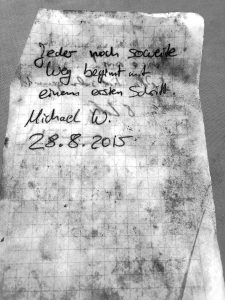 Jeder noch soweite
Weg beginnt mit
einem ersten Schritt
Michael W.
28.8.2015